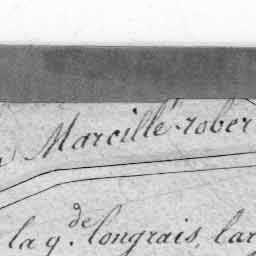 Marcillé-rober
la g.de Longrais, lar